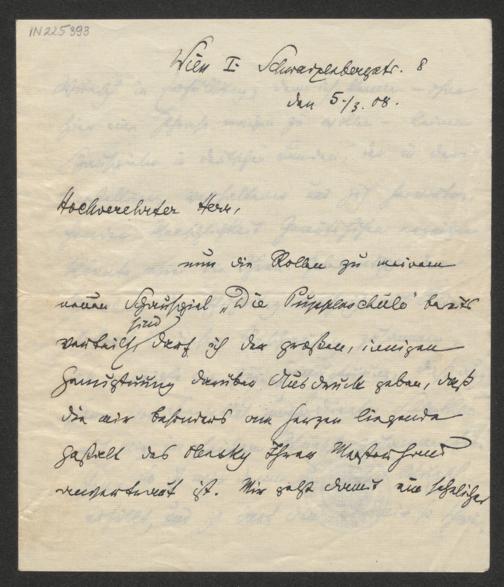 IN 225393
Wien I. Schwarzenbergstr. 8
den 5./3. 08.
Hochverehrter Herr,
nun die Rollen zu meinem
neuen Schauspiel „Die Puppenschule“ bereits
verteilt sind, darf ich der großen, innigen
Genugtuung darüber Ausdruck geben, daß
die mir besonders am Herzen liegende
Gestalt des Ihrer Meisterhand
anvertraut ist. Mir geht damit ein